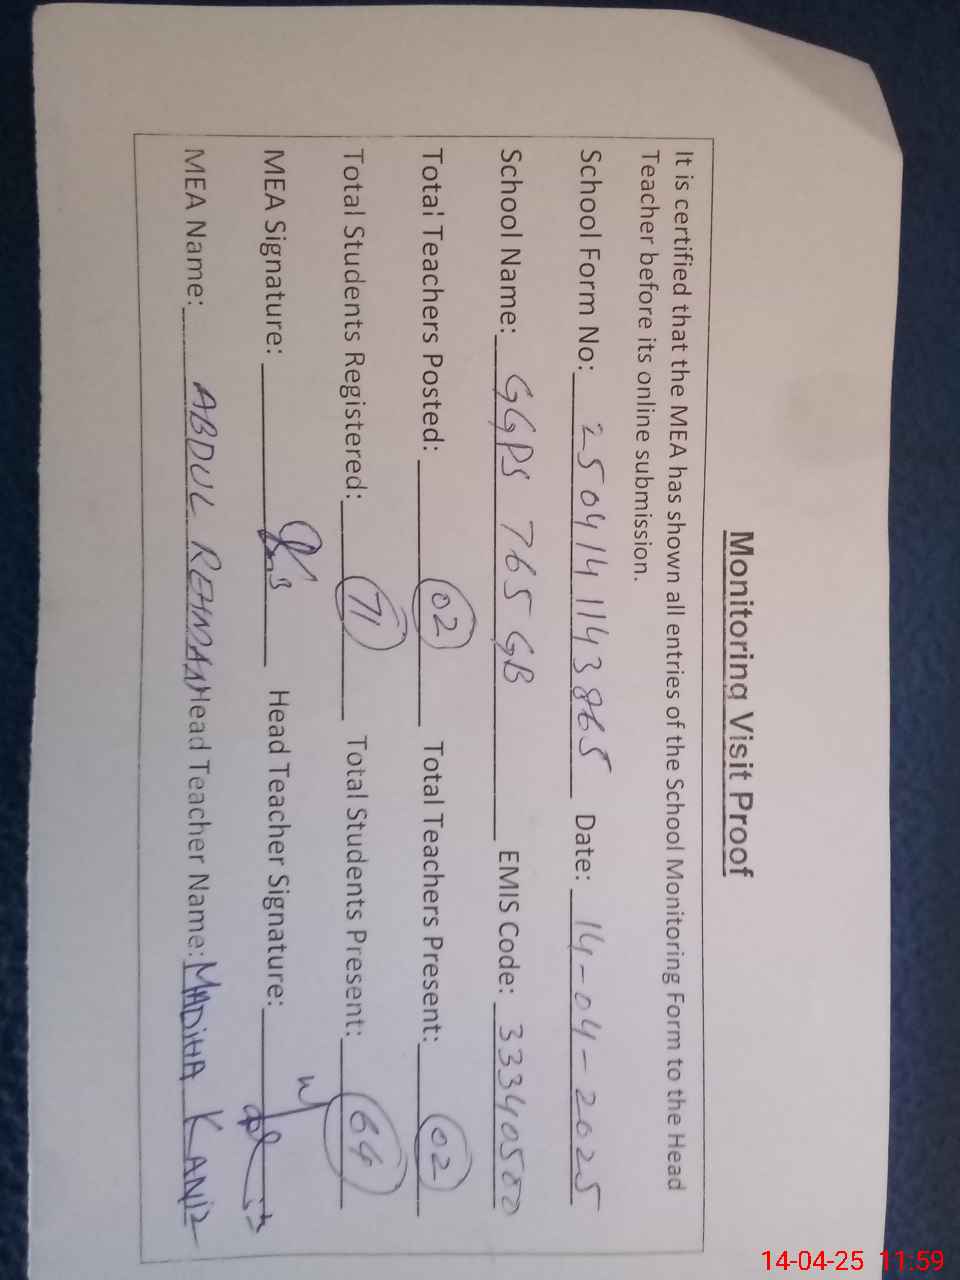 Monitoring Visit Proof
It is certified that the MEA has shown all entries of the School Monitoring Form to the Head
Teacher before its online submission.
School Form No: 2504141143865 Date: 14-04-2025
School Name: GGPS 765 GB EMIS Code: 33340500
Total Teachers Posted: 02 Total Teachers Present: 02
Total Students Registered: 71 Total Students Present: 64
MEA Signature: Head Teacher Signature:
MEA Name: ABDUL REHMAN Head Teacher Name: MADiHA KANiz
14-04-25 11:59